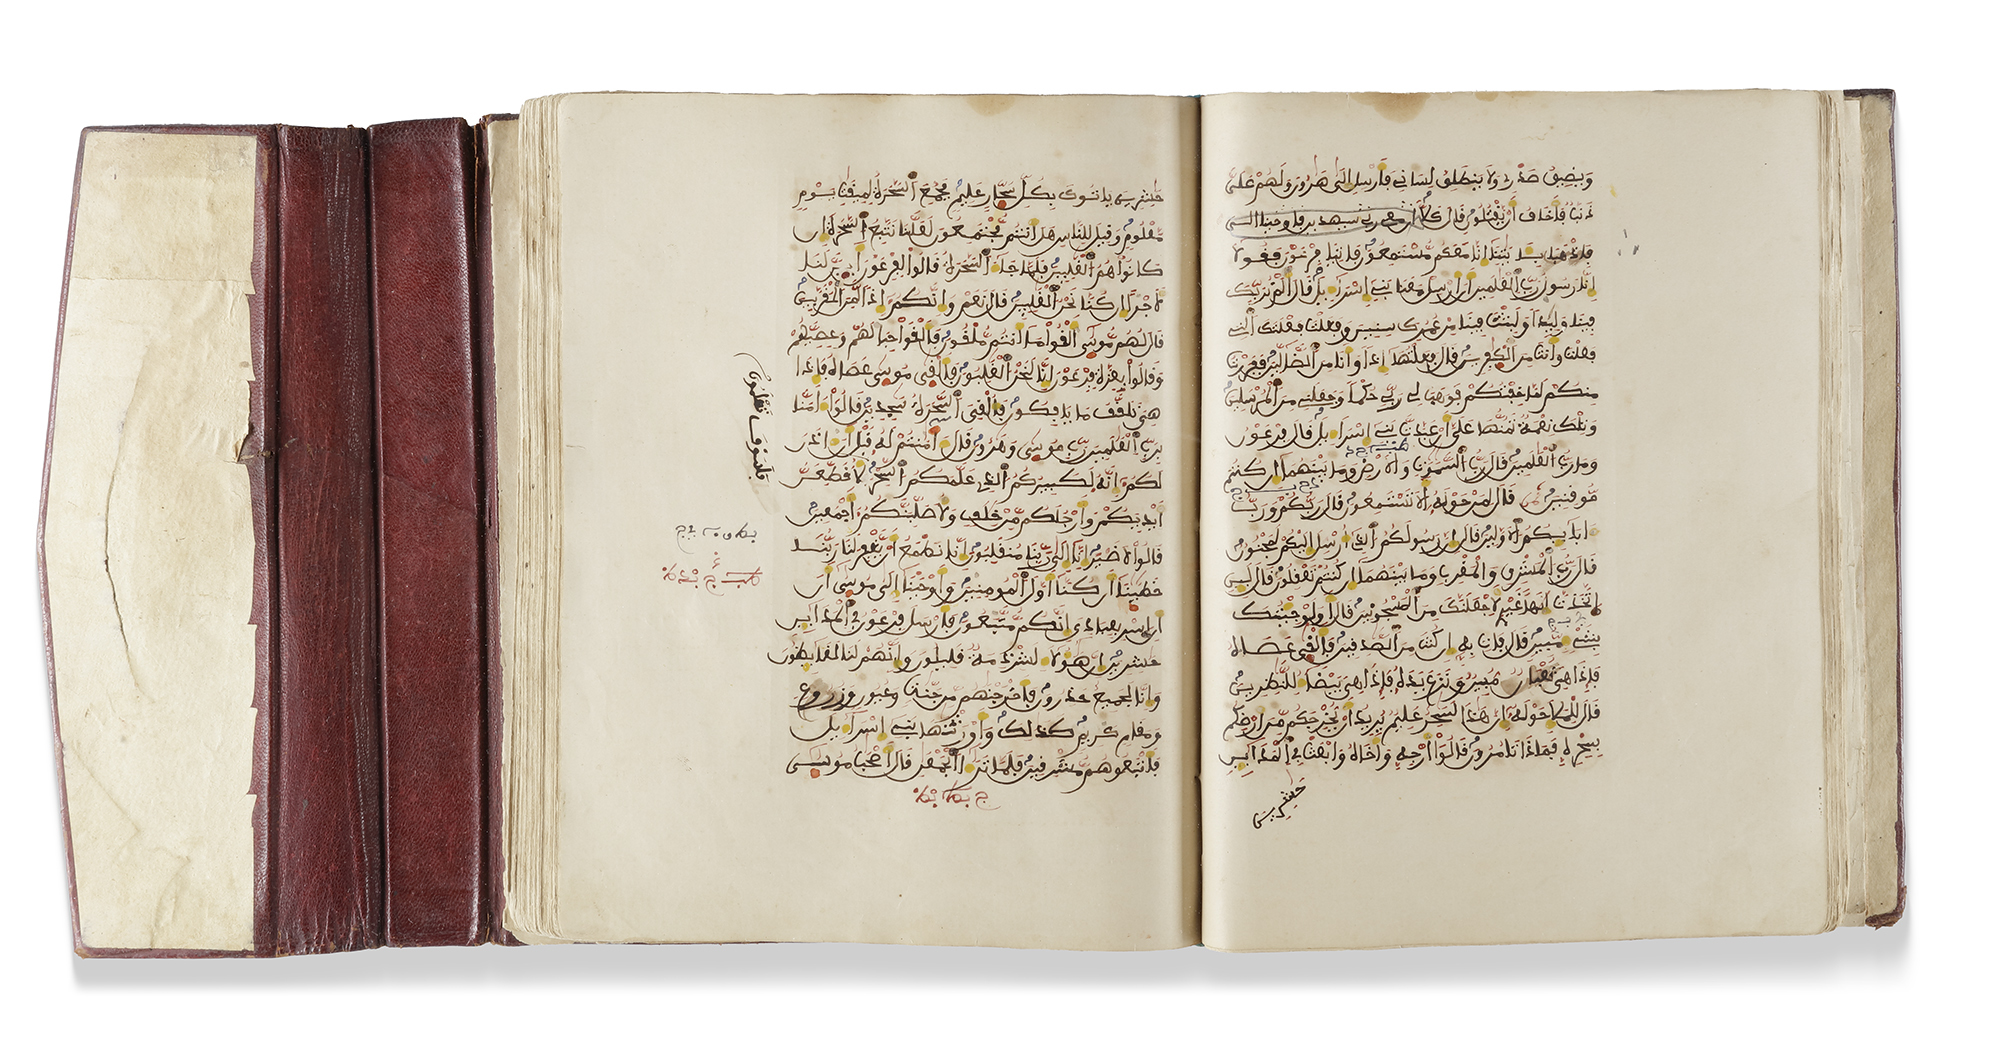 ويضيق صدرى ولا ينطلق لسانى فأرسل إلى هرون ولهم على
ذنب فأخاف أن يقتلون قال كلا
فاذهبا بـايتنا إنا معكم مستمعون فاتيا فرعون فقولا
إنا رسول رب العلمين أن ارسل معنا بنى إسراءيل قال ألم نربك
فينا وليدا ولبثت فينا من عمرك سنين وفعلت فعلتك التى
فعلت وأنت من الكفرين قال فعلتها إذا وأنا من الضالين ففررت
منكم لما خفتكم فوهب لى ربى حكما وجعلنى من المرسلين
وتلك نعمة تمنها على أن عبدت بنى إسراءيل قال فرعون
وما رب العلمين قال رب السموت والأرض وما بينهما إن كنتم
موقنين قال لمن حوله ألا تستمعون قال ربكم ورب
ابايكم الأولين قال إن رسولكم الذى أرسل إليكم لمجنون
قال رب المشرق والمغرب وما بينهما إن كنتم تعقلون قال لين
اتخذت إلها غيرى لأجعلنك من المسجونين قال أولو جيتك
بشىء مبين قال فات به إن كنت من الصدقين فألقى عصاه
فإذا هى ثعبان مبين ونزع يده فإذا هى بيضاء للنظرين
قال للملإ حوله إن هذا لسحر عليم يريد أن يخرجكم من أرضكم
بسحره فماذا تامرون قالوا أرجه وأخاه وابعث فى المداين
حشرين
حشرين ياتوك بكل سحار عليم فجمع السحرة لميقت يوم
معلوم وقيل للناس هل أنتم مجتمعون لعلنا نتبع السحرة إن
كانوا هم الغلبين فلما جاء السحرة قالوا لفرعون أين لنا
لأجرا إن كنا نحن الغلبين قال نعم وإنكم إذا لمن المقربين
قال لهم موسى ألقوا ما أنتم ملقون فألقوا حبالهم وعصيهم
وقالوا بعزة فرعون إنا لنحن الغلبون فألقى موسى عصاه فإذا
هى تلقف ما يافكون فألقى السحرة سجدين قالوا ءامنا
برب العلمين رب موسى وهرون قال ءامنتم له قبل أن ءاذن
لكم إنه لكبيركم الذى علمكم السحر
فلسوف تعلمون
لأقطعن
أيديكم وأرجلكم من خلف ولأصلبنكم أجمعين
قالوا لا ضير إنا إلى ربنا منقلبون إنا نطمع أن يغفر لنا ربنا
خطينا أن كنا أول المومنين وأوحينا إلى موسى أن
اسر بعبادى إنكم متبعون فأرسل فرعون فى المداين
حشرين إن هولاء لشرذمة قليلون وإنهم لنا لغايظون
وإنا لجميع حذرون فأخرجنهم من جنت وعيون وزروع
ومقام كريم كذلك وأورثنها بنى إسراءيل
فأتبعوهم مشرقين فلما ترءا الجمعن قال أصحب موسى